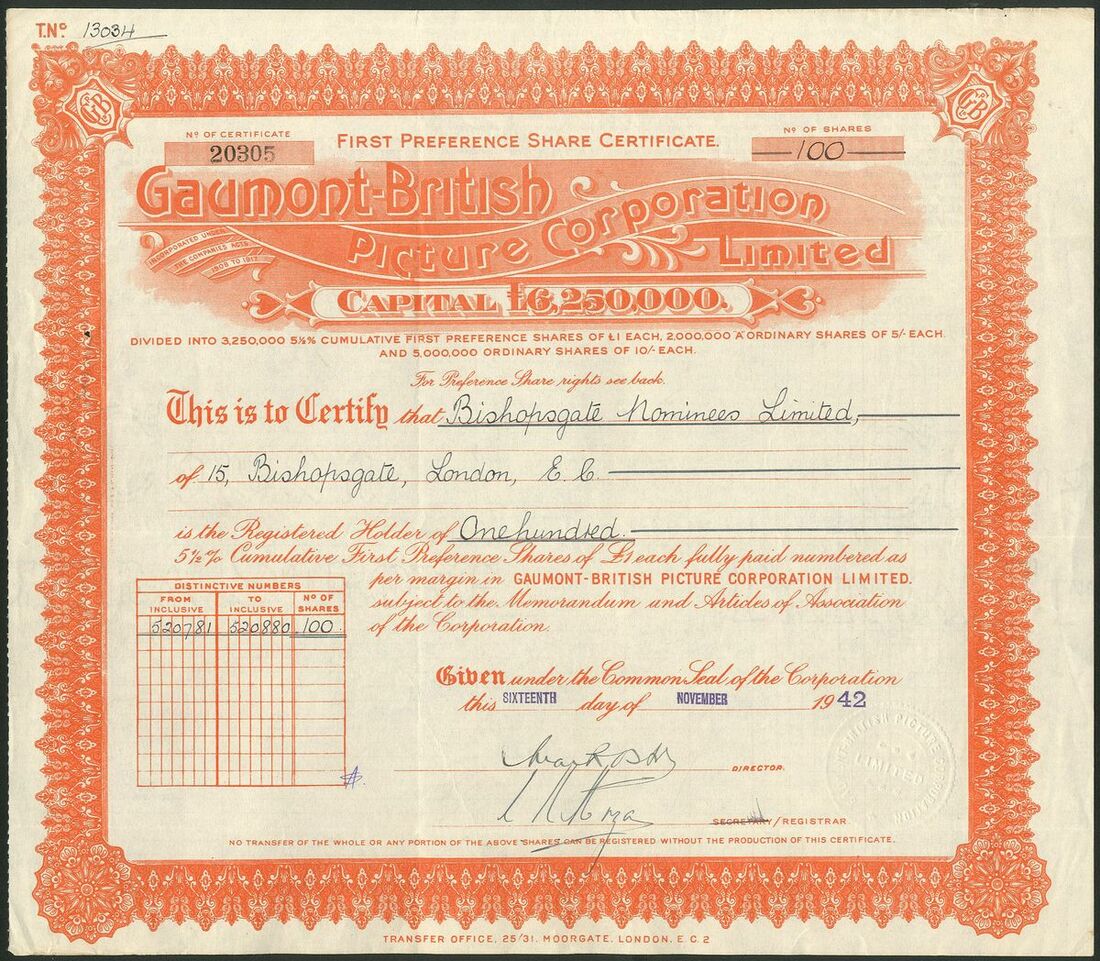 T.Nº 13034
Nº OF CERTIFICATE
20305
FIRST PREFERENCE SHARE CERTIFICATE.
Nº OF SHARES
100
Gaumont-British
Picture Corporation
Limited
INCORPORATED UNDER
THE COMPANIES ACTS
1908 TO 1917
CAPITAL £6,250,000.
DIVIDED INTO 3,250,000 5½% CUMULATIVE FIRST PREFERENCE SHARES OF £1 EACH, 2,000,000 A ORDINARY SHARES OF 5/- EACH.
AND 5,000,000 ORDINARY SHARES OF 10/- EACH.
For Preference Share rights see back.
This is to Certify that Bishopsgate Nominees Limited,
of 15, Bishopsgate, London, E.C.
is the Registered Holder of One hundred.
5½% Cumulative First Preference Shares of £1 each fully paid numbered as
per margin in GAUMONT-BRITISH PICTURE CORPORATION LIMITED.
subject to the Memorandum and Articles of Association
of the Corporation.
DISTINCTIVE NUMBERS
FROM INCLUSIVE TO INCLUSIVE Nº OF SHARES
520781 520880 100
Given under the Common Seal of the Corporation
this SIXTEENTH day of NOVEMBER 1942
DIRECTOR.
SECRETARY/REGISTRAR.
LIMITED
NO TRANSFER OF THE WHOLE OR ANY PORTION OF THE ABOVE SHARES CAN BE REGISTERED WITHOUT THE PRODUCTION OF THIS CERTIFICATE.
TRANSFER OFFICE, 25/31. MOORGATE. LONDON. E.C.2